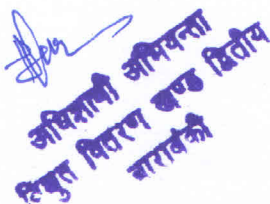 अधिशाषी अभियन्ता
विद्युत वितरण खण्ड द्वितीय
बाराबंकी